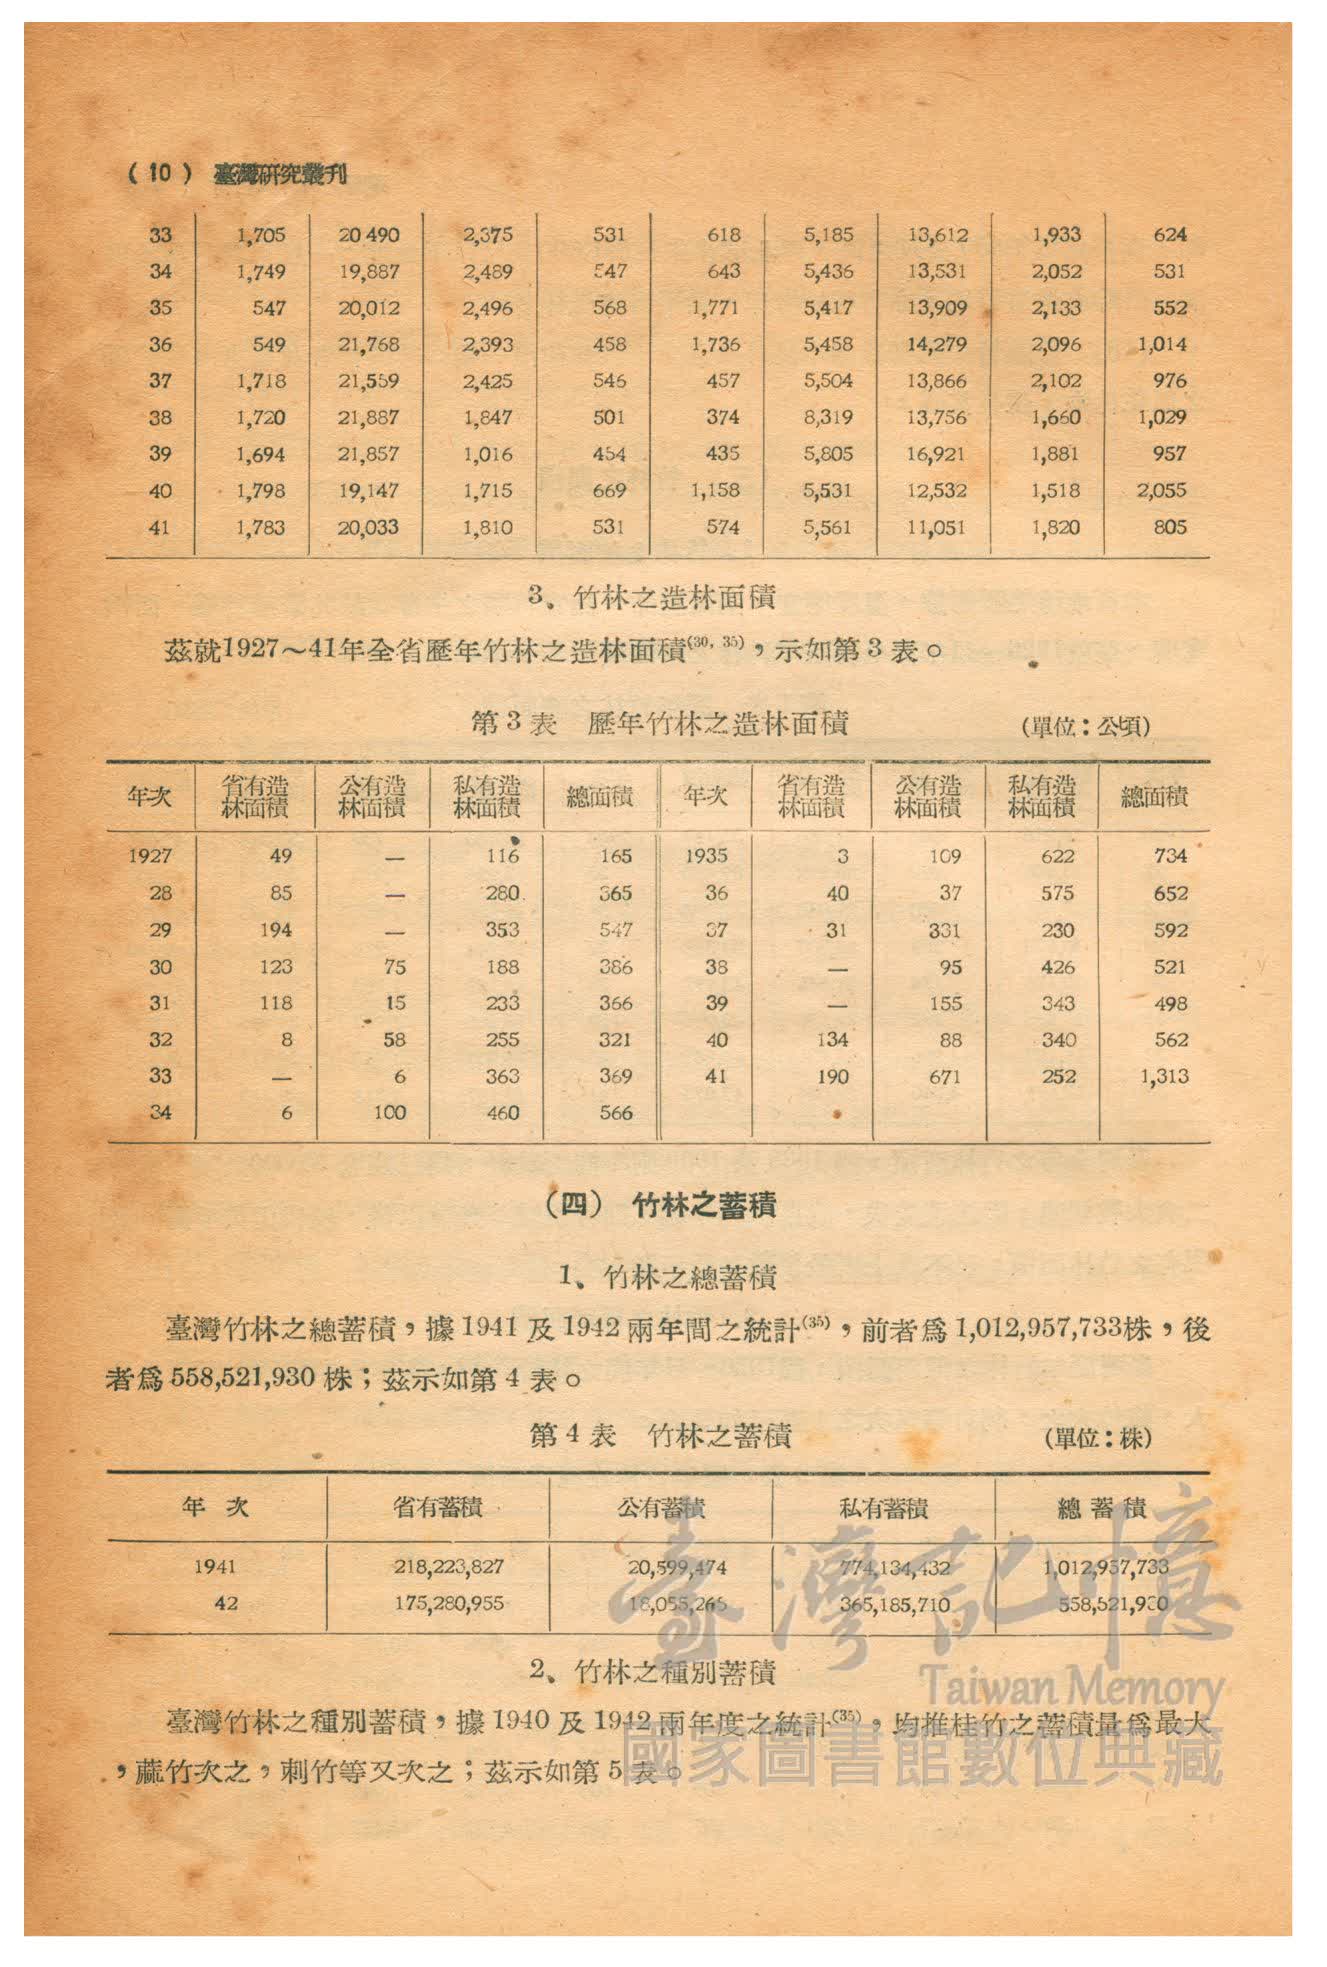 (10) 臺灣研究叢刊
33 1,705 20 490 2,375 531 618 5,185 13,612 1,933 624
34 1,749 19,887 2,489 547 643 5,436 13,531 2,052 531
35 547 20,012 2,496 568 1,771 5,417 13,909 2,133 552
36 549 21,768 2,393 458 1,736 5,458 14,279 2,096 1,014
37 1,718 21,559 2,425 546 457 5,504 13,866 2,102 976
38 1,720 21,887 1,847 501 374 8,319 13,756 1,660 1,029
39 1,694 21,857 1,016 454 435 5,805 16,921 1,881 957
40 1,798 19,147 1,715 669 1,158 5,531 12,532 1,518 2,055
41 1,783 20,033 1,810 531 574 5,561 11,051 1,820 805
3、竹林之造林面積
茲就1927～41年全省歷年竹林之造林面積(30, 35)，示如第3表。
第3表 歷年竹林之造林面積 (單位：公頃)
年次 省有造林面積 公有造林面積 私有造林面積 總面積 年次 省有造林面積 公有造林面積 私有造林面積 總面積
1927 49 — 116 165 1935 3 109 622 734
28 85 — 280 365 36 40 37 575 652
29 194 — 353 547 37 31 331 230 592
30 123 75 188 386 38 — 95 426 521
31 118 15 233 366 39 — 155 343 498
32 8 58 255 321 40 134 88 340 562
33 — 6 363 369 41 190 671 252 1,313
34 6 100 460 566
(四) 竹林之蓄積
1、竹林之總蓄積
臺灣竹林之總蓄積，據1941及1942兩年間之統計(35)，前者爲1,012,957,733株，後
者爲558,521,930株；茲示如第4表。
第4表 竹林之蓄積 (單位：株)
年次 省有蓄積 公有蓄積 私有蓄積 總蓄積
1941 218,223,827 20,599,474 774,134,432 1,012,957,733
42 175,280,955 18,055,265 365,185,710 558,521,930
2、竹林之種別蓄積
臺灣竹林之種別蓄積，據1940及1942兩年度之統計(35)，均推桂竹之蓄積量爲最大
，蔴竹次之，刺竹等又次之；茲示如第5表。
臺灣記憶
Taiwan Memory
國家圖書館數位典藏